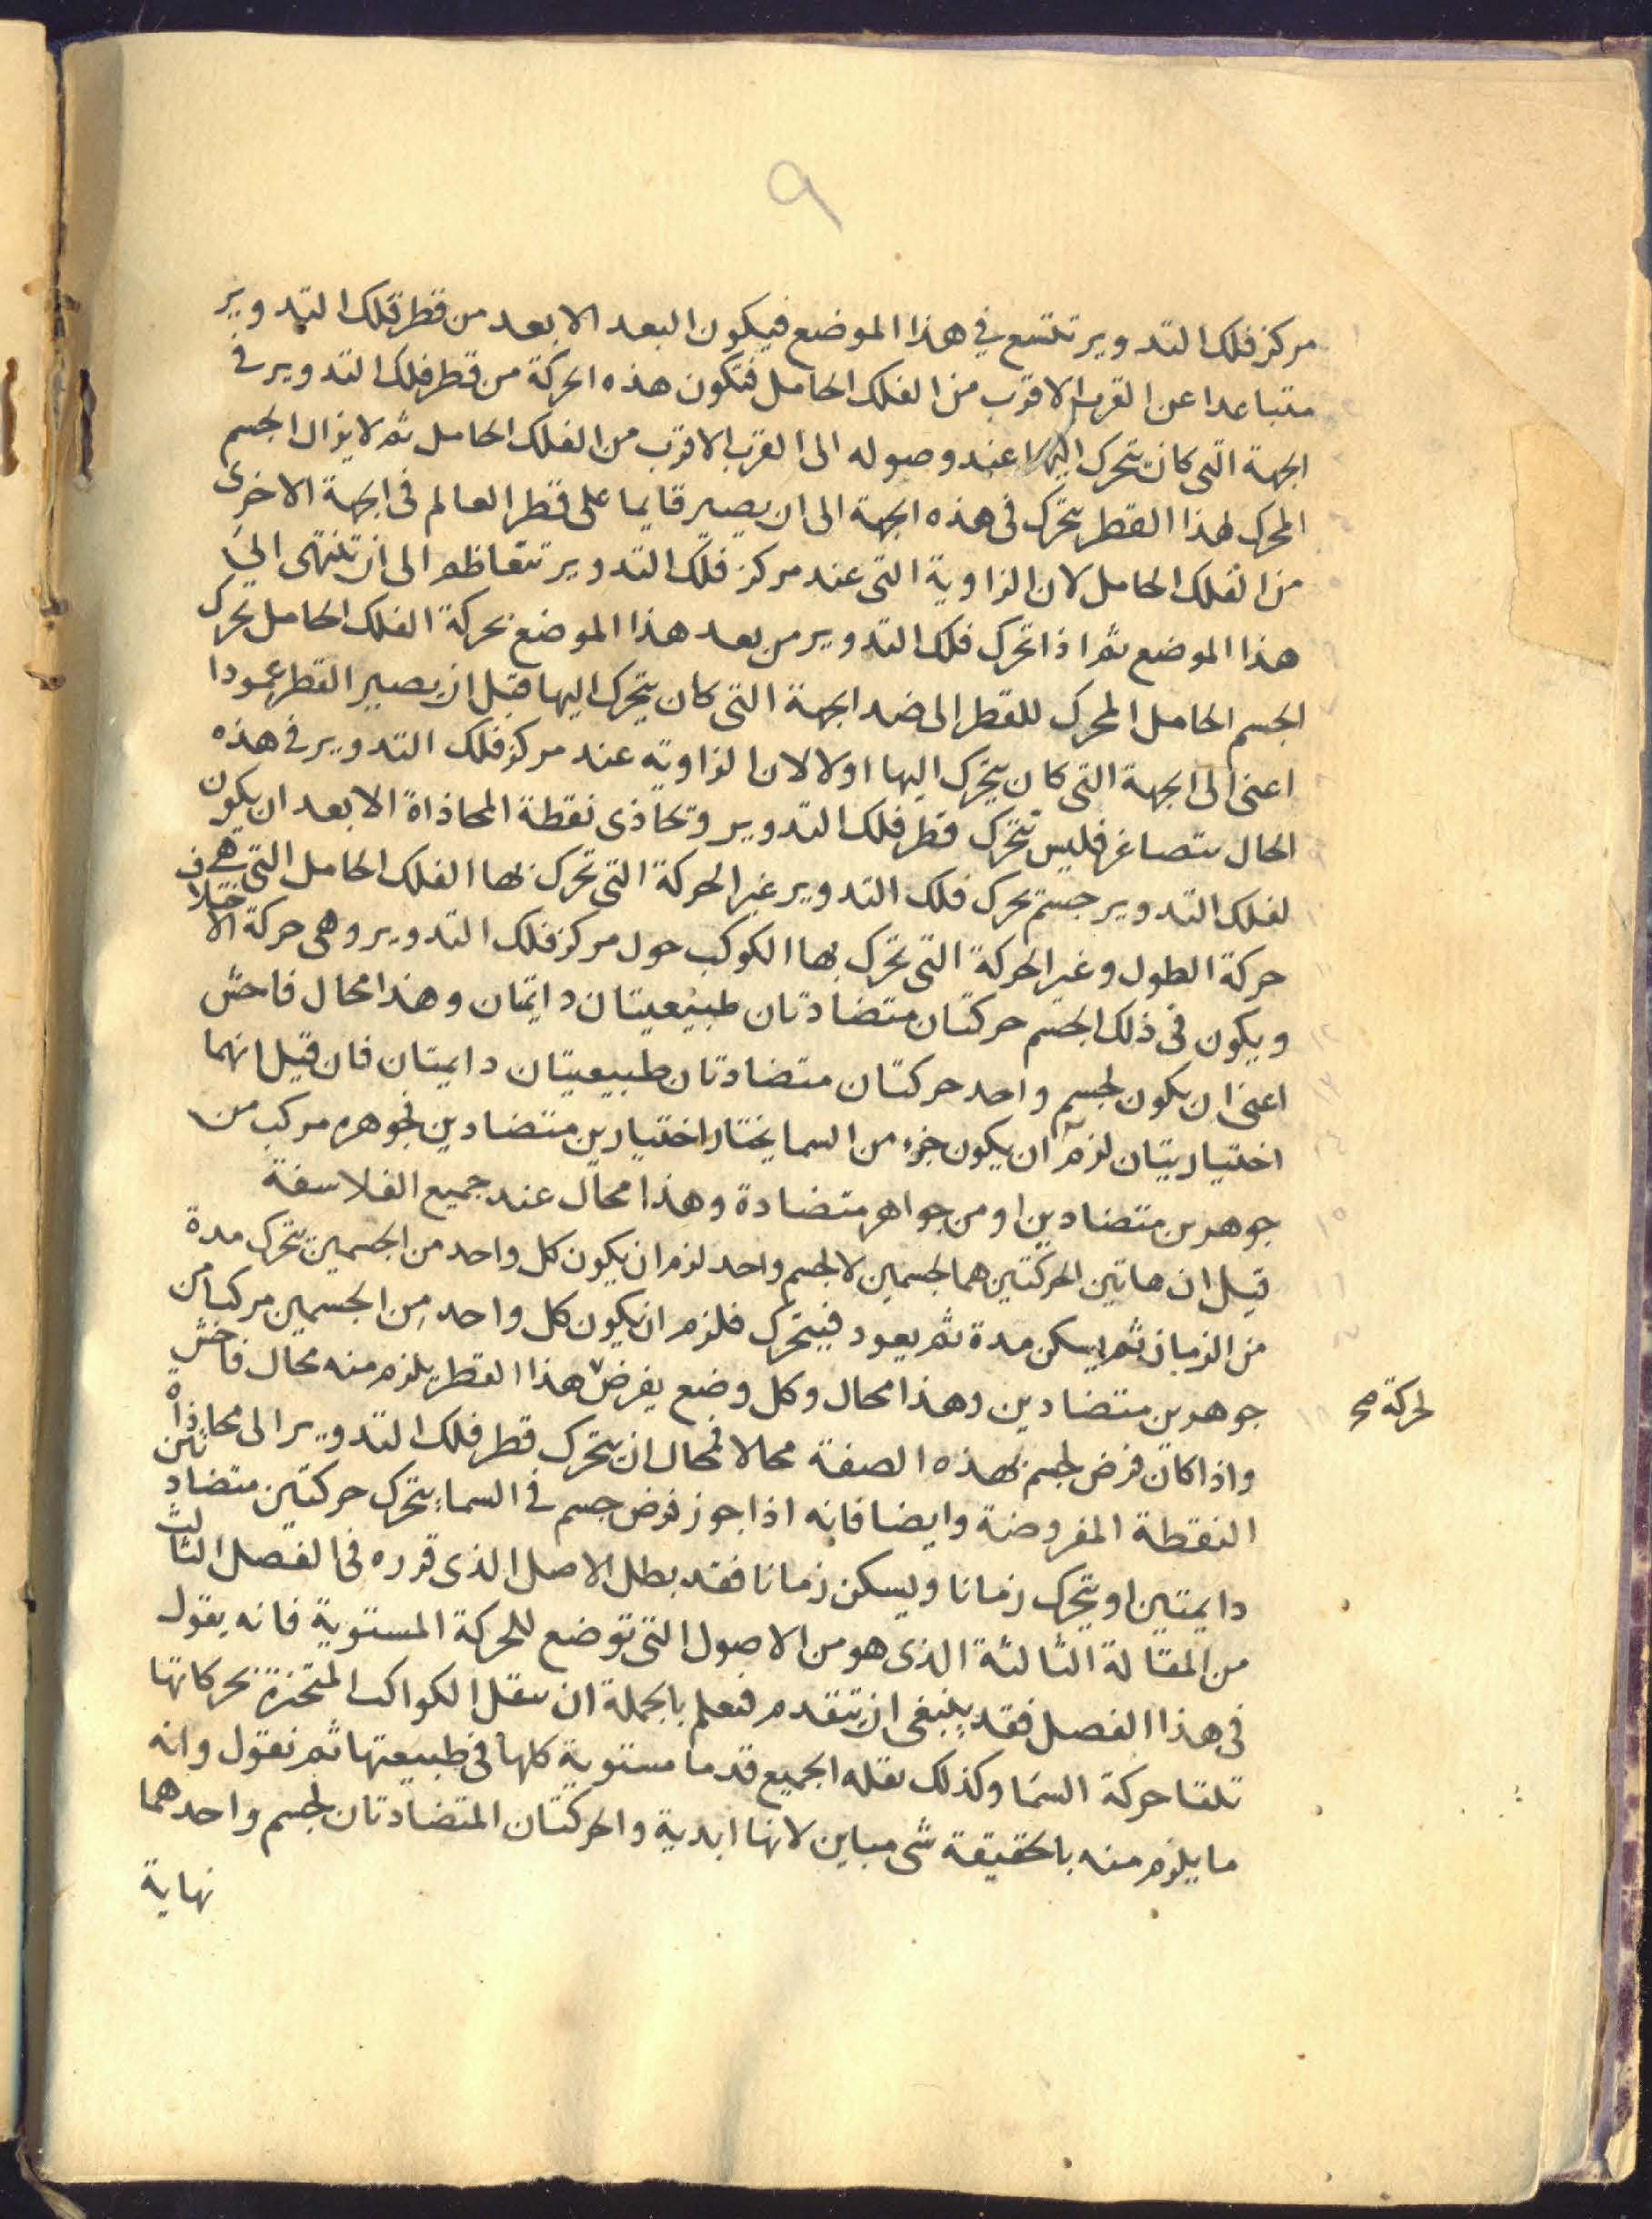 ٩
مركز فلك التدوير تتسع في هذا الموضع فيكون البعد الابعد من قطر فلك التدوير
متباعدا عن القرب الاقرب من الفلك الحامل فتكون هذه الحركة من قطر فلك التدوير في
الجهة التى كان يتحرك اليها عند وصوله الى القرب الاقرب من الفلك الحامل ثم لا يزال الجسم
المحرك لهذا القطر يتحرك فى هذه الجهة الى ان يصير قايما على قطر العالم فى الجهة الاخرى
من الفلك الحامل لان الزاوية التى عند مركز فلك التدوير تتعاظم الى ان تنتهى الى
هذا الموضع ثم اذا تحرك فلك التدوير من بعد هذا الموضع بحركة الفلك الحامل تحرك
الجسم الحامل المحرك للقطر الى ضد الجهة التى كان يتحرك اليها قبل ان يصير القطر عمودا
اعنى الى الجهة التى كان يتحرك اليها اولا لان الزاوية عند مركز فلك التدوير في هذه
الحال تتصاغر فليس يتحرك قطر فلك التدوير وتحاذى نقطة المحاذاة الا بعد ان يكون
لفلك التدوير جسم يحرك فلك التدوير غير الحركة التى تحرك بها الفلك الحامل التى هي
حركة الطول وغير الحركة التى تحرك بها الكوكب حول مركز فلك التدوير وهى حركة الاختلاف
ويكون فى ذلك الجسم حركتان متضادتان طبيعيتان دايمتان وهذا محال فاحش
اعنى ان يكون لجسم واحد حركتان متضادتان طبيعيتان دايمتان فان قيل انهما
اختياريتان لزم ان يكون جزء من السما يختار اختيارين متضادين فجوهره مركب من
جوهرين متضادين او من جواهر متضادة وهذا محال عند جميع الفلاسفة
قيل ان هاتين الحركتين هما لجسمين لا لجسم واحد لزم ان يكون كل واحد من الجسمين يتحرك مدة
من الزمان ثم يسكن مدة ثم يعود فيتحرك فلزم ان يكون كل واحد من الجسمين مركبا من
جوهرين متضادين وهذا محال وكل وضع يفرض هذا القطر يلزم منه محال فاحش
لحركة صح
واذا كان فرض لجسم بهذه الصفة محالا فمحال ان يتحرك قطر فلك التدوير الى محاذاة
النقطة المفروضة وايضا فانه اذا جوز فرض جسم في السماء يتحرك حركتين متضادتين
دايمتين او يتحرك زمانا ويسكن زمانا فقد بطل الاصل الذى قرره فى الفصل الثالث
من المقالة الثالثة الذى هو من الاصول التى توضع للحركة المستوية فانه يقول
فى هذا الفصل فقد ينبغى ان يتقدم فنعلم بالجملة ان نقل الكواكب المتحيرة بحركاتها
تلقا حركة السما وكذلك نقله الجميع قدما مستوية كلها فى طبيعتها ثم نقول وانه
ما يلزم منه بالحقيقة شى مباين لانها ابدية والحركتان المتضادتان لجسم واحد هما
نهاية